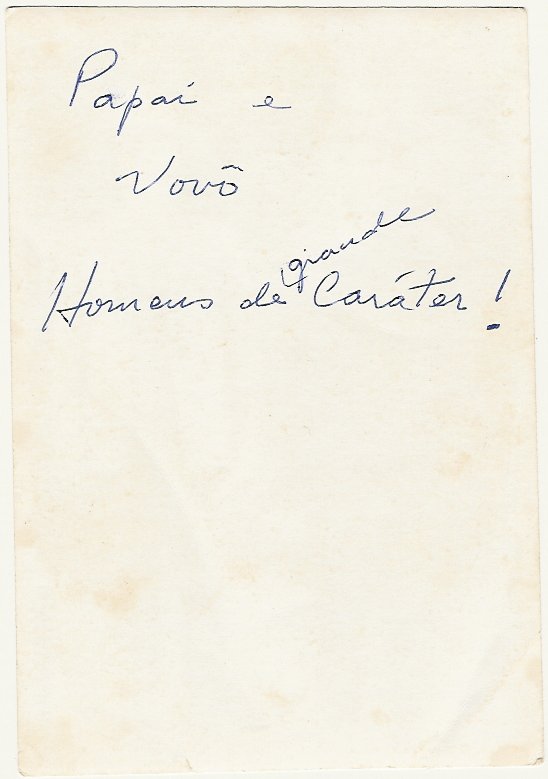 Papai e
Vovô
Homens de grande Caráter!